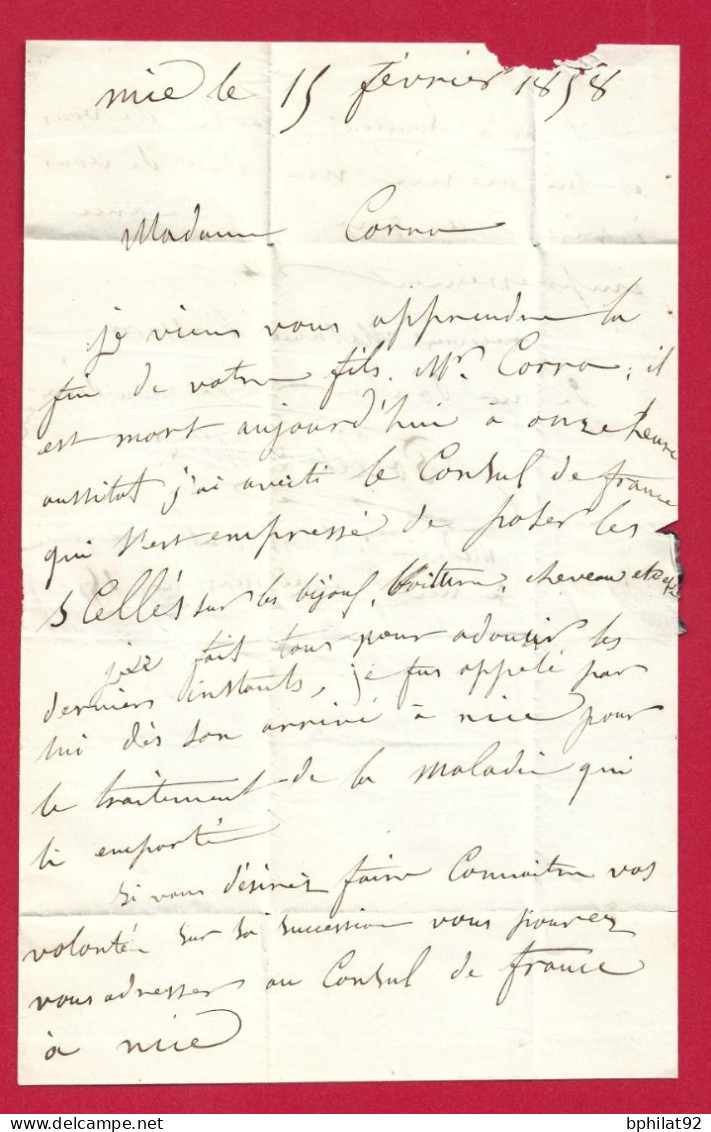 nice le 15 février 1858
Madame Corra
je viens vous apprendre la
fin de votre fils. Mr. Corra, il
est mort aujourd'hui à onze heure
aussitot j'ai averti le Consul de france
qui s'est empressé de poser les
scellés sur les bijoux, voiture, cheveau etc etc
j'ai fait tous pour adoucir les
derniers instants, je fus appelé par
lui dès son arrivé à nice pour
le traitement de la maladie qui
li emporté
si vous désirez faire Connaitre vos
volontés sur sa succession vous pouvez
vous adresser au Consul de france
à nice
bphilat92